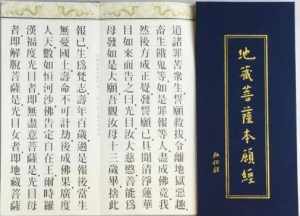 地藏菩薩本願經
道諸罪苦眾生誓願救拔令離地獄惡趣
畜生餓鬼等如是罪報等人盡成佛竟我
然後方成正覺發誓願已具聞清淨蓮華
目如來而告之曰光目汝大慈愍善能為
母發如是大願吾觀汝母十三歲畢捨此
報已生為梵志壽年百歲過是報後當生
無憂國土壽命不可計劫後成佛果廣度
人天數如恒河沙佛告定自在王爾時羅
漢福度光目者即無盡意菩薩是光目母
者即解脫菩薩是光目女者即地藏菩薩